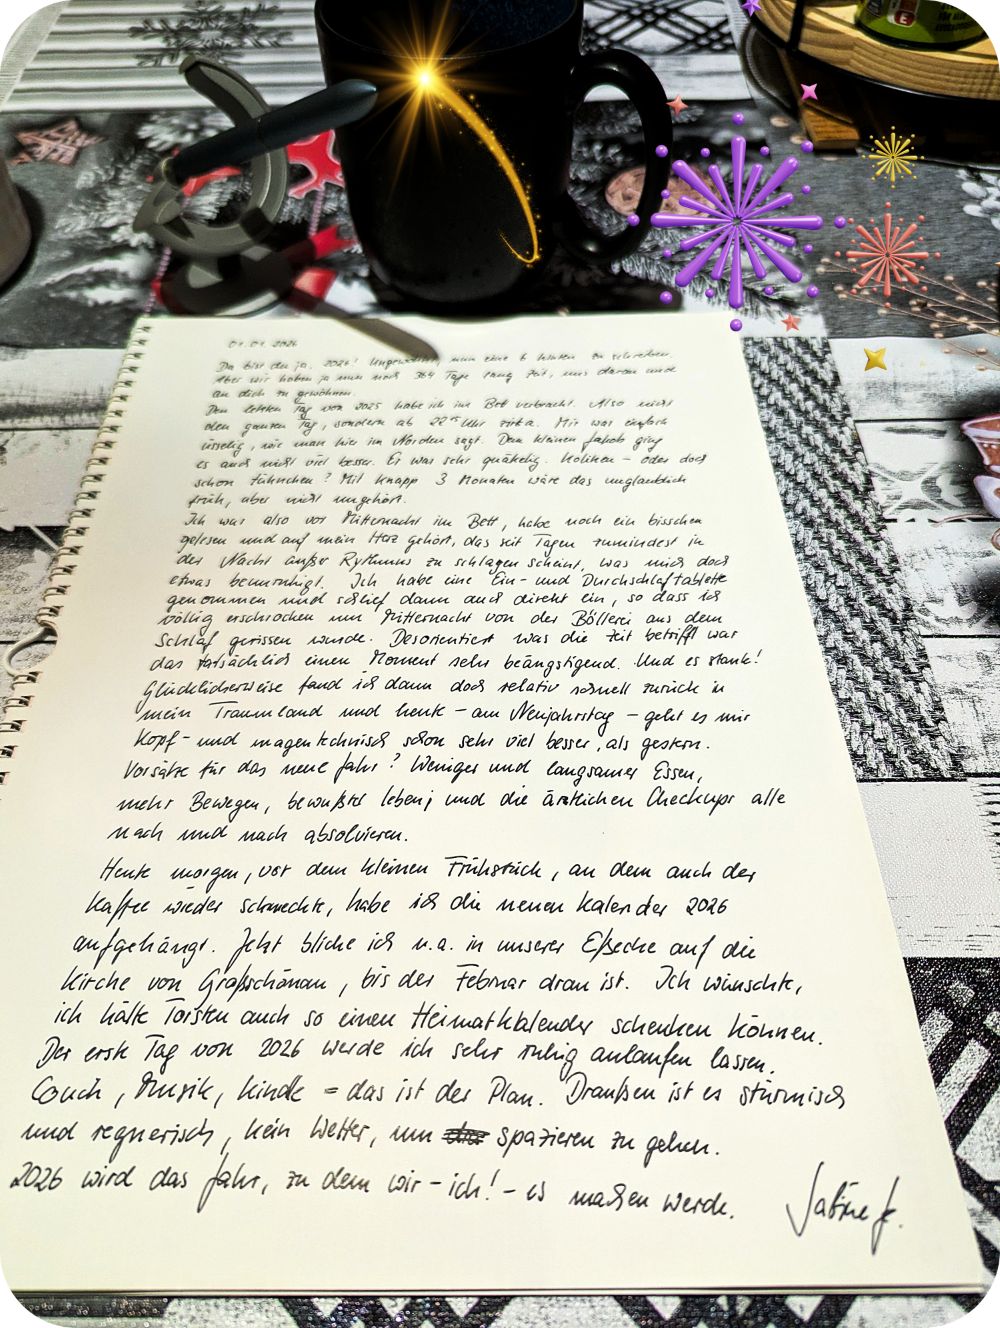 01.01.2026
Da bist du ja, 2026! Ungewohnt, nun eine 6 hinten zu schreiben.
Aber wir haben ja nun noch 364 Tage lang Zeit, uns daran und
an dich zu gewöhnen.
Den letzten Tag von 2025 habe ich im Bett verbracht. Also nicht
den ganzen Tag, sondern ab 22 Uhr zirka. Mir war einfach
üsselig, wie man hier im Norden sagt. Dem kleinen Jakob ging
es auch nicht viel besser. Er war sehr quäkelig. Koliken - oder doch
schon Zähnchen? Mit knapp 3 Monaten wäre das unglaublich
früh, aber nicht ungehört.
Ich war also vor Mitternacht im Bett, habe noch ein bisschen
gelesen und auf mein Herz gehört, das seit Tagen zumindest in
der Nacht außer Rythmus zu schlagen scheint, was mich doch
etwas beunruhigt. Ich habe eine Ein- und Durchschlaftablette
genommen und schlief dann auch direkt ein, so dass ich
völlig erschrocken um Mitternacht von der Böllerei aus dem
Schlaf gerissen wurde. Desorientiert was die Zeit betrifft war
das tatsächlich einen Moment sehr beängstigend. Und es stank!
Glücklicherweise fand ich dann doch relativ schnell zurück in
mein Traumland und heute - am Neujahrstag - geht es mir
Kopf- und magentechnisch schon sehr viel besser, als gestern.
Vorsätze für das neue Jahr? Weniger und langsamer Essen,
mehr Bewegen, bewußter leben; und die ärztlichen Checkups alle
nach und nach absolvieren.
Heute morgen, vor dem kleinen Frühstück, an dem auch der
Kaffee wieder schmeckte, habe ich die neuen Kalender 2026
aufgehängt. Jetzt blicke ich u.a. in unserer Eßecke auf die
Kirche von Großschönau, bis der Februar dran ist. Ich wünschte,
ich hätte Torsten auch so einen Heimatkalender schenken können.
Der erste Tag von 2026 werde ich sehr ruhig anlaufen lassen.
Couch, Musik, Kindle = das ist der Plan. Draußen ist es stürmisch
und regnerisch, kein Wetter, um spazieren zu gehen.
2026 wird das Jahr, zu dem wir - ich! - es machen werde. Sabine